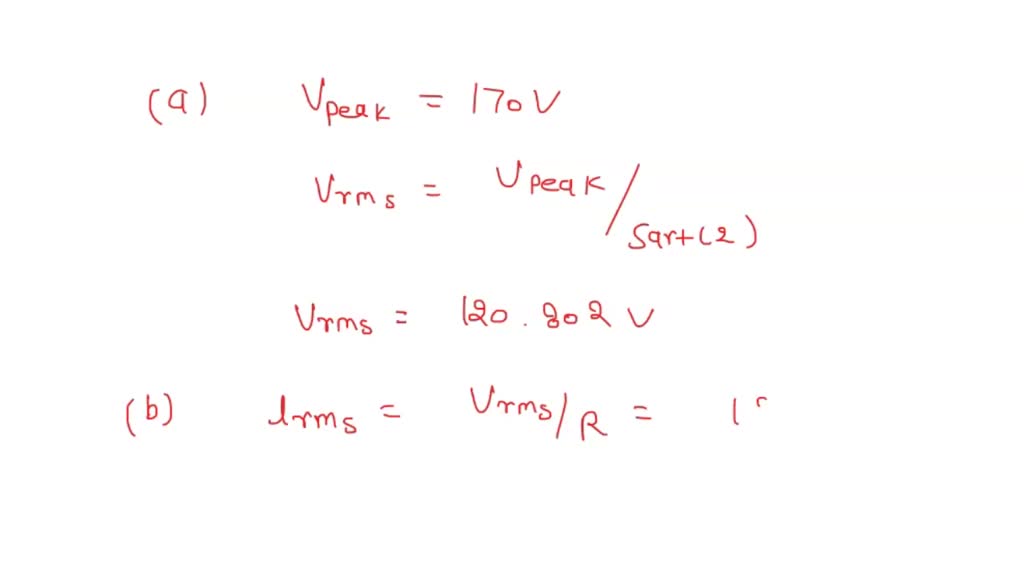 (a) Vpeak = 170 V
Vrms = Vpeak / Sqrt(2)
Vrms = 120.202 V
(b) Irms = Vrms/R = 1